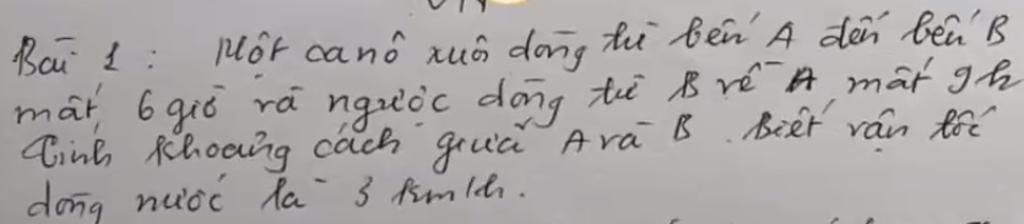 Bài 1 : Một canô xuôi dòng từ bến A đến bến B
mất 6 giờ và ngược dòng từ B về A mất 9h
Tính khoảng cách giữa A và B. Biết vận tốc
dòng nước là 3 km/h.